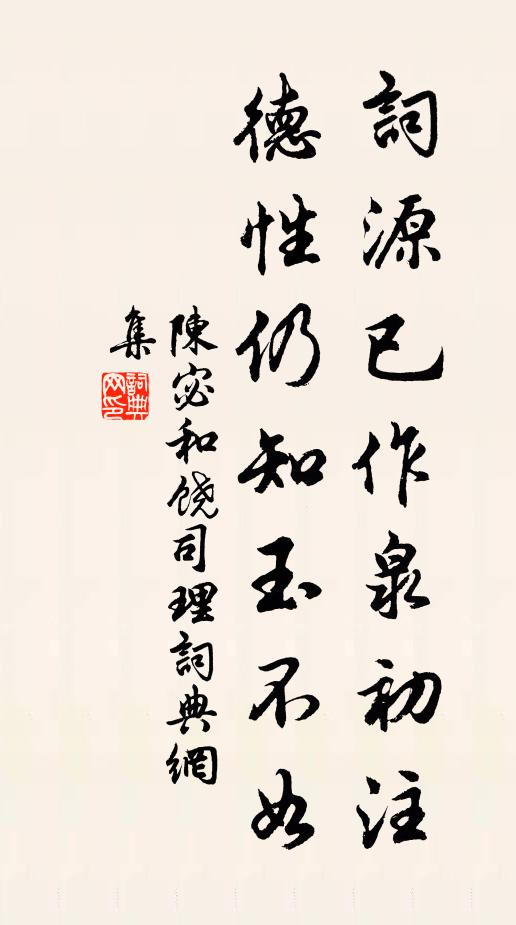 詞源已作泉初注
德性仍知玉不如
陳宓和饒司理詞典網
集
詞典
网印